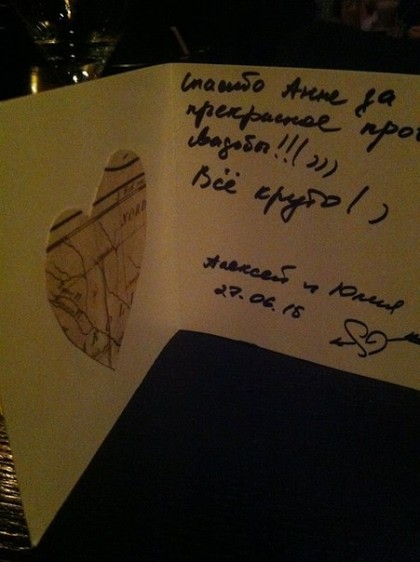 Спасибо Анне за
прекрасное про
свадьбы!!!(,)))
Всё круто!)
Алексей и Юлия
27.06.15
NORD